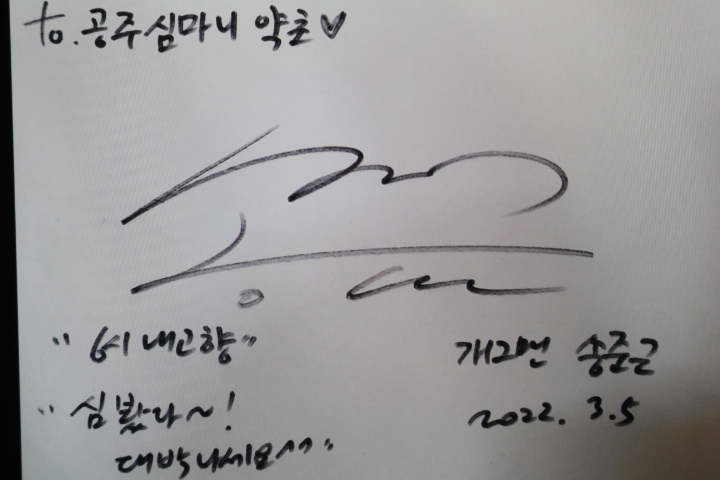 to. 공주심마니 약초♡
"6시 내고향"
개그맨 송준근
"심봤다~!
2022. 3.5
대박나세요^^"